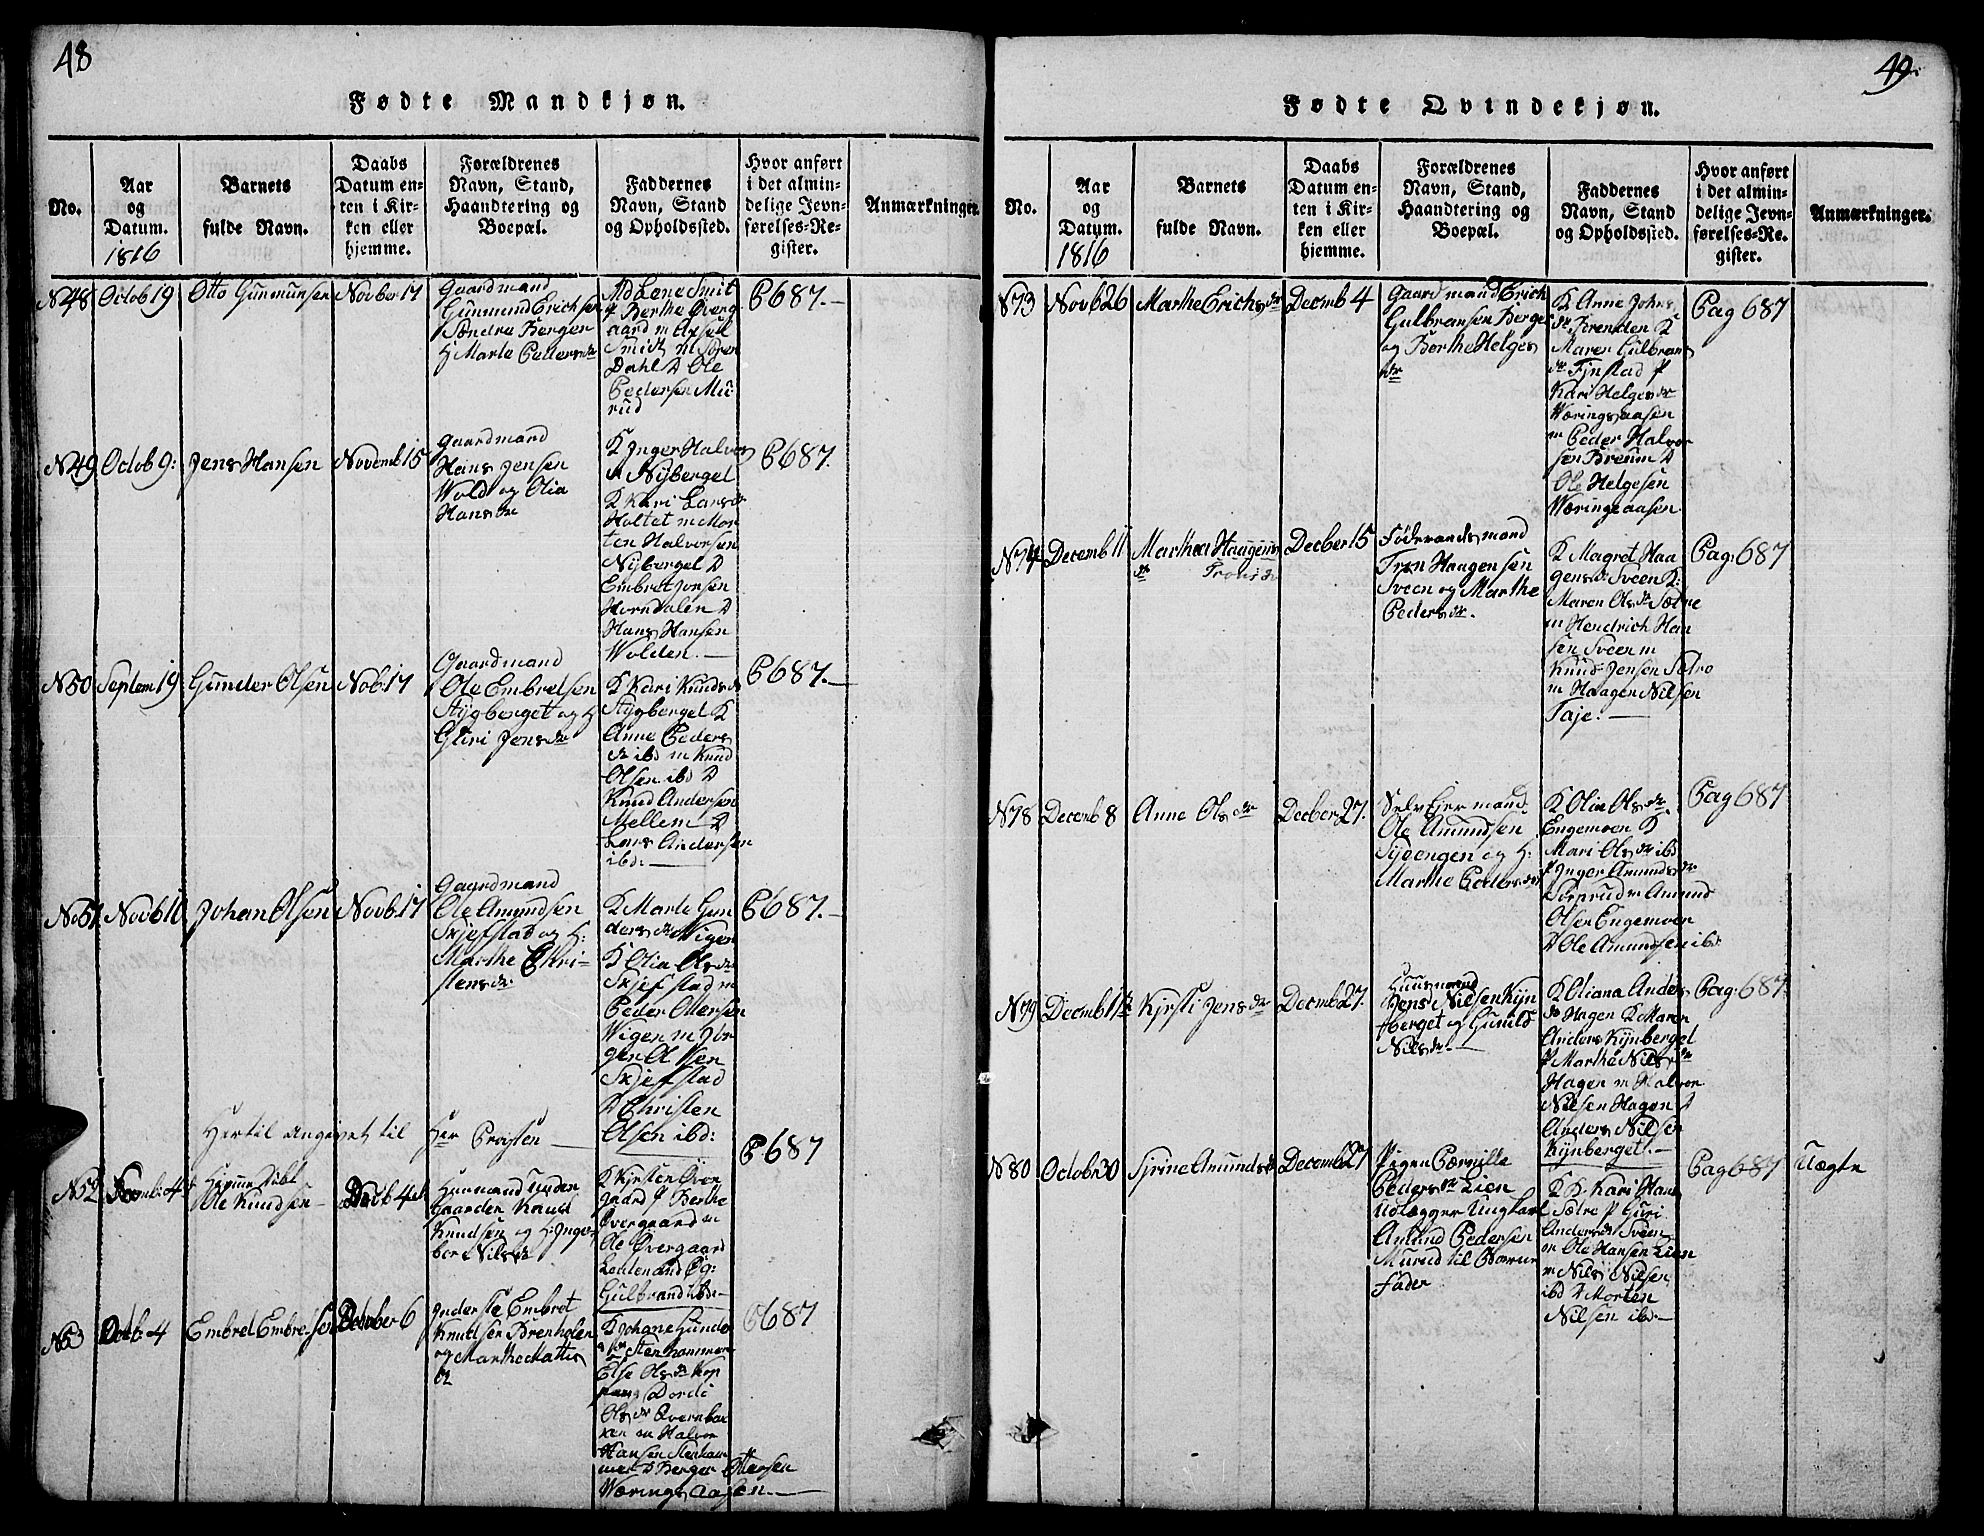 48
Fødte Mandkjøn.
No.
Aar
og
Datum.
1816
Barnets
fulde Navn.
Daabs
Datum en-
ten i Kir-
ken eller
hjemme.
Forældrenes
Navn, Stand,
Haandtering og
Boepæl.
Faddernes
Navn, Stand
og Opholdssted.
Hvor anført
i det almin-
delige Jevn-
førelses-Re-
gister.
Anmærkninger.
N48
Octob 19
Otto Gunmunsen
Novber 17
Gaardmand
Gunmund Erichsen
Søndre Berger
H Marte Peders dr
Md Lene Smit
P Berthe Øverg
aard m Axsel
Smidt m Søren
Dahl D Ole
Pedersen Mu
rud
P687.-
N49
Octob 9:
Jens Hansen
Novemb 15
Gaardmand
Hans Jensen
Wold og Olia
Hans dr
K Inger Halvor
Nÿberget
K Kari Lars dr
Holtet m Mor
ten Halvorsen
Nÿberget D
Embret Jonsen
Horndalen D
Hans Hansen
Wolden.-
P687.
N50
Septem 19
Gunder Olsen
Nob. 17
Gaardmand
Ole Embretsen
Stÿgberget og H
Gliri Jens dr
K Kari Knuds dr
Stÿgberget K
Anne Peders
dr ibd m Knud
Olsen ibd D
Knud Andersen
Mellem D
Lars Andersen
ibd:-
P687.-
No51
Novb 10
Johan Olsen
Novb. 17
Gaardmand
Ole Amundsen
Skjefstad og H:
Marthe Chri-
stens dr
K Marte Gun
ders dr Wigen
K Olia Ols dr
Skjefstad m
Peder Ottersen
Wigen m Jør
gen Olsen
Skjefstad
D Christen
Olsen ibd:
P687.-
Hertil angivet til Her Provsten
P687
N52
4
Hjemme døbt
Ole Knudsen
Huusmand under
Gaarden Knud
Knudsen og H: Inge
ber Nils dr
K Kjrsten Øver
gaard P Berthe
Øvergaard m
Ole Øvergaard
Leutenand og:
Gulbrand ibd-
N53
Octb: 4
Embret Embretsen
October 6
Inderste Embret
Knudsen Brenholen
og Marthe Mattis
dr
K Johane Gunde
Stenhammer
Else Ols dr Kop
pang Dordi
Ols dr Qvernbak
ken m Halvor
Hansen Stenham
mer D Berger Ottersen
Wæringsaasen.-
P687
49
Fødte Qvindekjøn.
No.
Aar
og
Datum.
1816
Barnets
fulde Navn.
Daabs
Datum en-
ten i Kir-
ken eller
hjemme.
Forældrenes
Navn, Stand,
Haandtering og
Boepæl.
Faddernes
Navn, Stand
og Opholdssted.
Hvor anført
i det almin-
delige Jevn-
førelses-Re-
gister.
Anmærkninger.
N73
Novb 26
Marthe Erichs dr
Decemb 4
Gaardmand Erich
Gulbransen Berge
og Berthe Helges
dr
K Anne Johns
dr Brenden K
Maren Gulbrans
dr Finstad P
Kari Helges dr
Wæringsaasen
m Peder Halvor
sen Breum D
Ole Helgesen
Wæringsaasen
Pag 687
N74
Decemb 11
Marthea Haagens
dr
Trons dr
Decber 15
Føderaadsmand
Tron Haagensen
Sveen og Marthe
Peders dr.
K Magret Haa
gens dr Sveen K:
Maren Ols dr Sætre
m Hendrich Han
sen Sveen m
Knud Jensen Sætre
m Haagen Nilsen
Taje.-
Pag. 687
N78
Decemb 8
Anne Ols dr
Decber 27.
Selveiermand
Ole Amundsen
og H:
Marthe Peders dr
K Olia Ols dr
Engemoen K
Mari Ols dr ibd
P Inger Amunds dr
m Amund
Olsen Engemoen
D Ole Amundsen ibd:
Pag 687
N79
Decemb 1
Kjrsti Jens dr
Decemb 27.
Huusmand
Jens Nielsen Kÿn
berget og Gunild
Nils dr.-
K Oliana Anders
dr Hagen K Maren
Anders Kÿnberget
P Marthe Nils dr
Hagen m Halvor
Nilsen Hagen D
Anders Nilsen
Kÿnberget.-
Pag. 687.
N80
Octobr 30
Sjrine Amunds dr
Decemb 27
Pigen Pernille
Peders dr Lien
Udlægger Ungkarl
Amund Pedersen
Murud til Barne
Fader
K Kari Hans
dr Sætre P Guri
Anders dr Sveen
m Ole Hansen Lien
m Nils Nilsen
ibd D Morten
Nilsen ibd-
Pag 687
Uægte